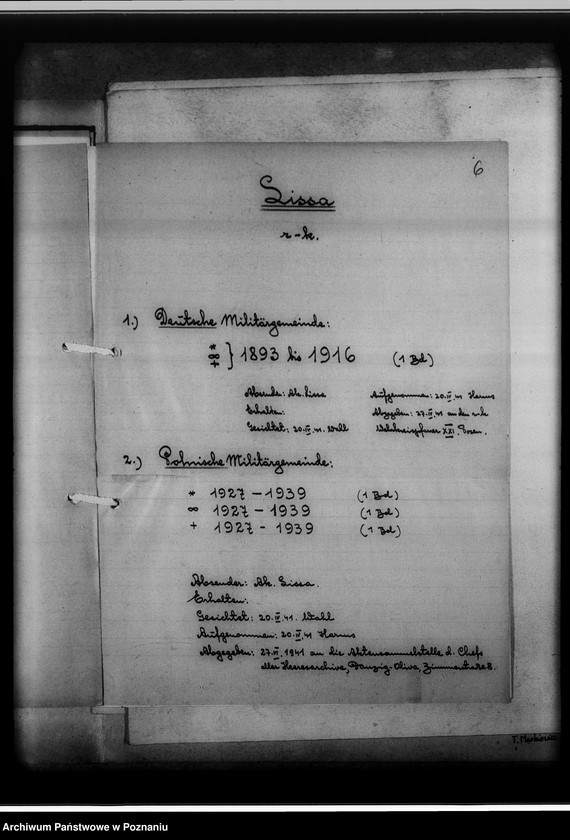 6
Lissa
r-k.
1.) Deutsche Militärgemeinde:
*
∞ } 1893 bis 1916 (1 Bd)
+
Absender: Ak. Lissa
Erhalten:
Gesichtet: 20.II.41. Wahl
Aufgenommen: 20.II.41 Harms
Abgegeben: 27.II.41 an den
XXI, Posen.
2.) Polnische Militärgemeinde:
* 1927 – 1939 (1 Bd)
∞ 1927 – 1939 (1 Bd)
+ 1927 - 1939 (1 Bd)
Absender: Ak. Lissa.
Erhalten:
Gesichtet: 20.II.41. Wahl
Aufgenommen: 20.II.41 Harms
Abgegeben: 27.II.1941 an die Aktensammelstelle d. Chefs
der Heeresarchive, Danzig-Oliva,
Archiwum Państwowe w Poznaniu